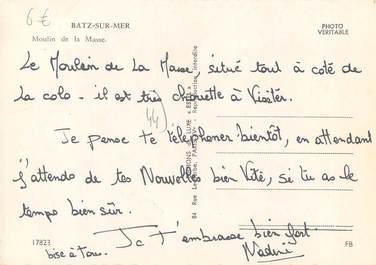 6€
BATZ-SUR-MER
Moulin de la Masse.
PHOTO
VERITABLE
Le Moulin de La Masse, situé tout à coté de
La colo - il est très chouette à Visiter.
44)
Je pense te téléphoner bientôt, en attendant
j'attends de tes Nouvelles bien Vite, si tu as le
temps bien sûr.
Je t'embrasse bien fort.
bise à tous.
Nadine
17823
FB